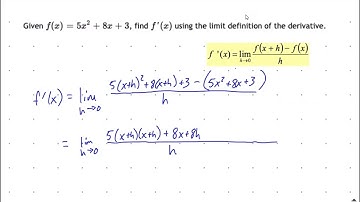 Given f(x) = 5x² + 8x + 3, find f'(x) using the limit definition of the derivative.
f '(x) = lim h→0 f(x+h) − f(x) / h
f'(x) = lim h→0 5(x+h)² + 8(x+h) + 3 − (5x² + 8x + 3) / h
= lim h→0 5(x+h)(x+h) + 8x + 8h / h